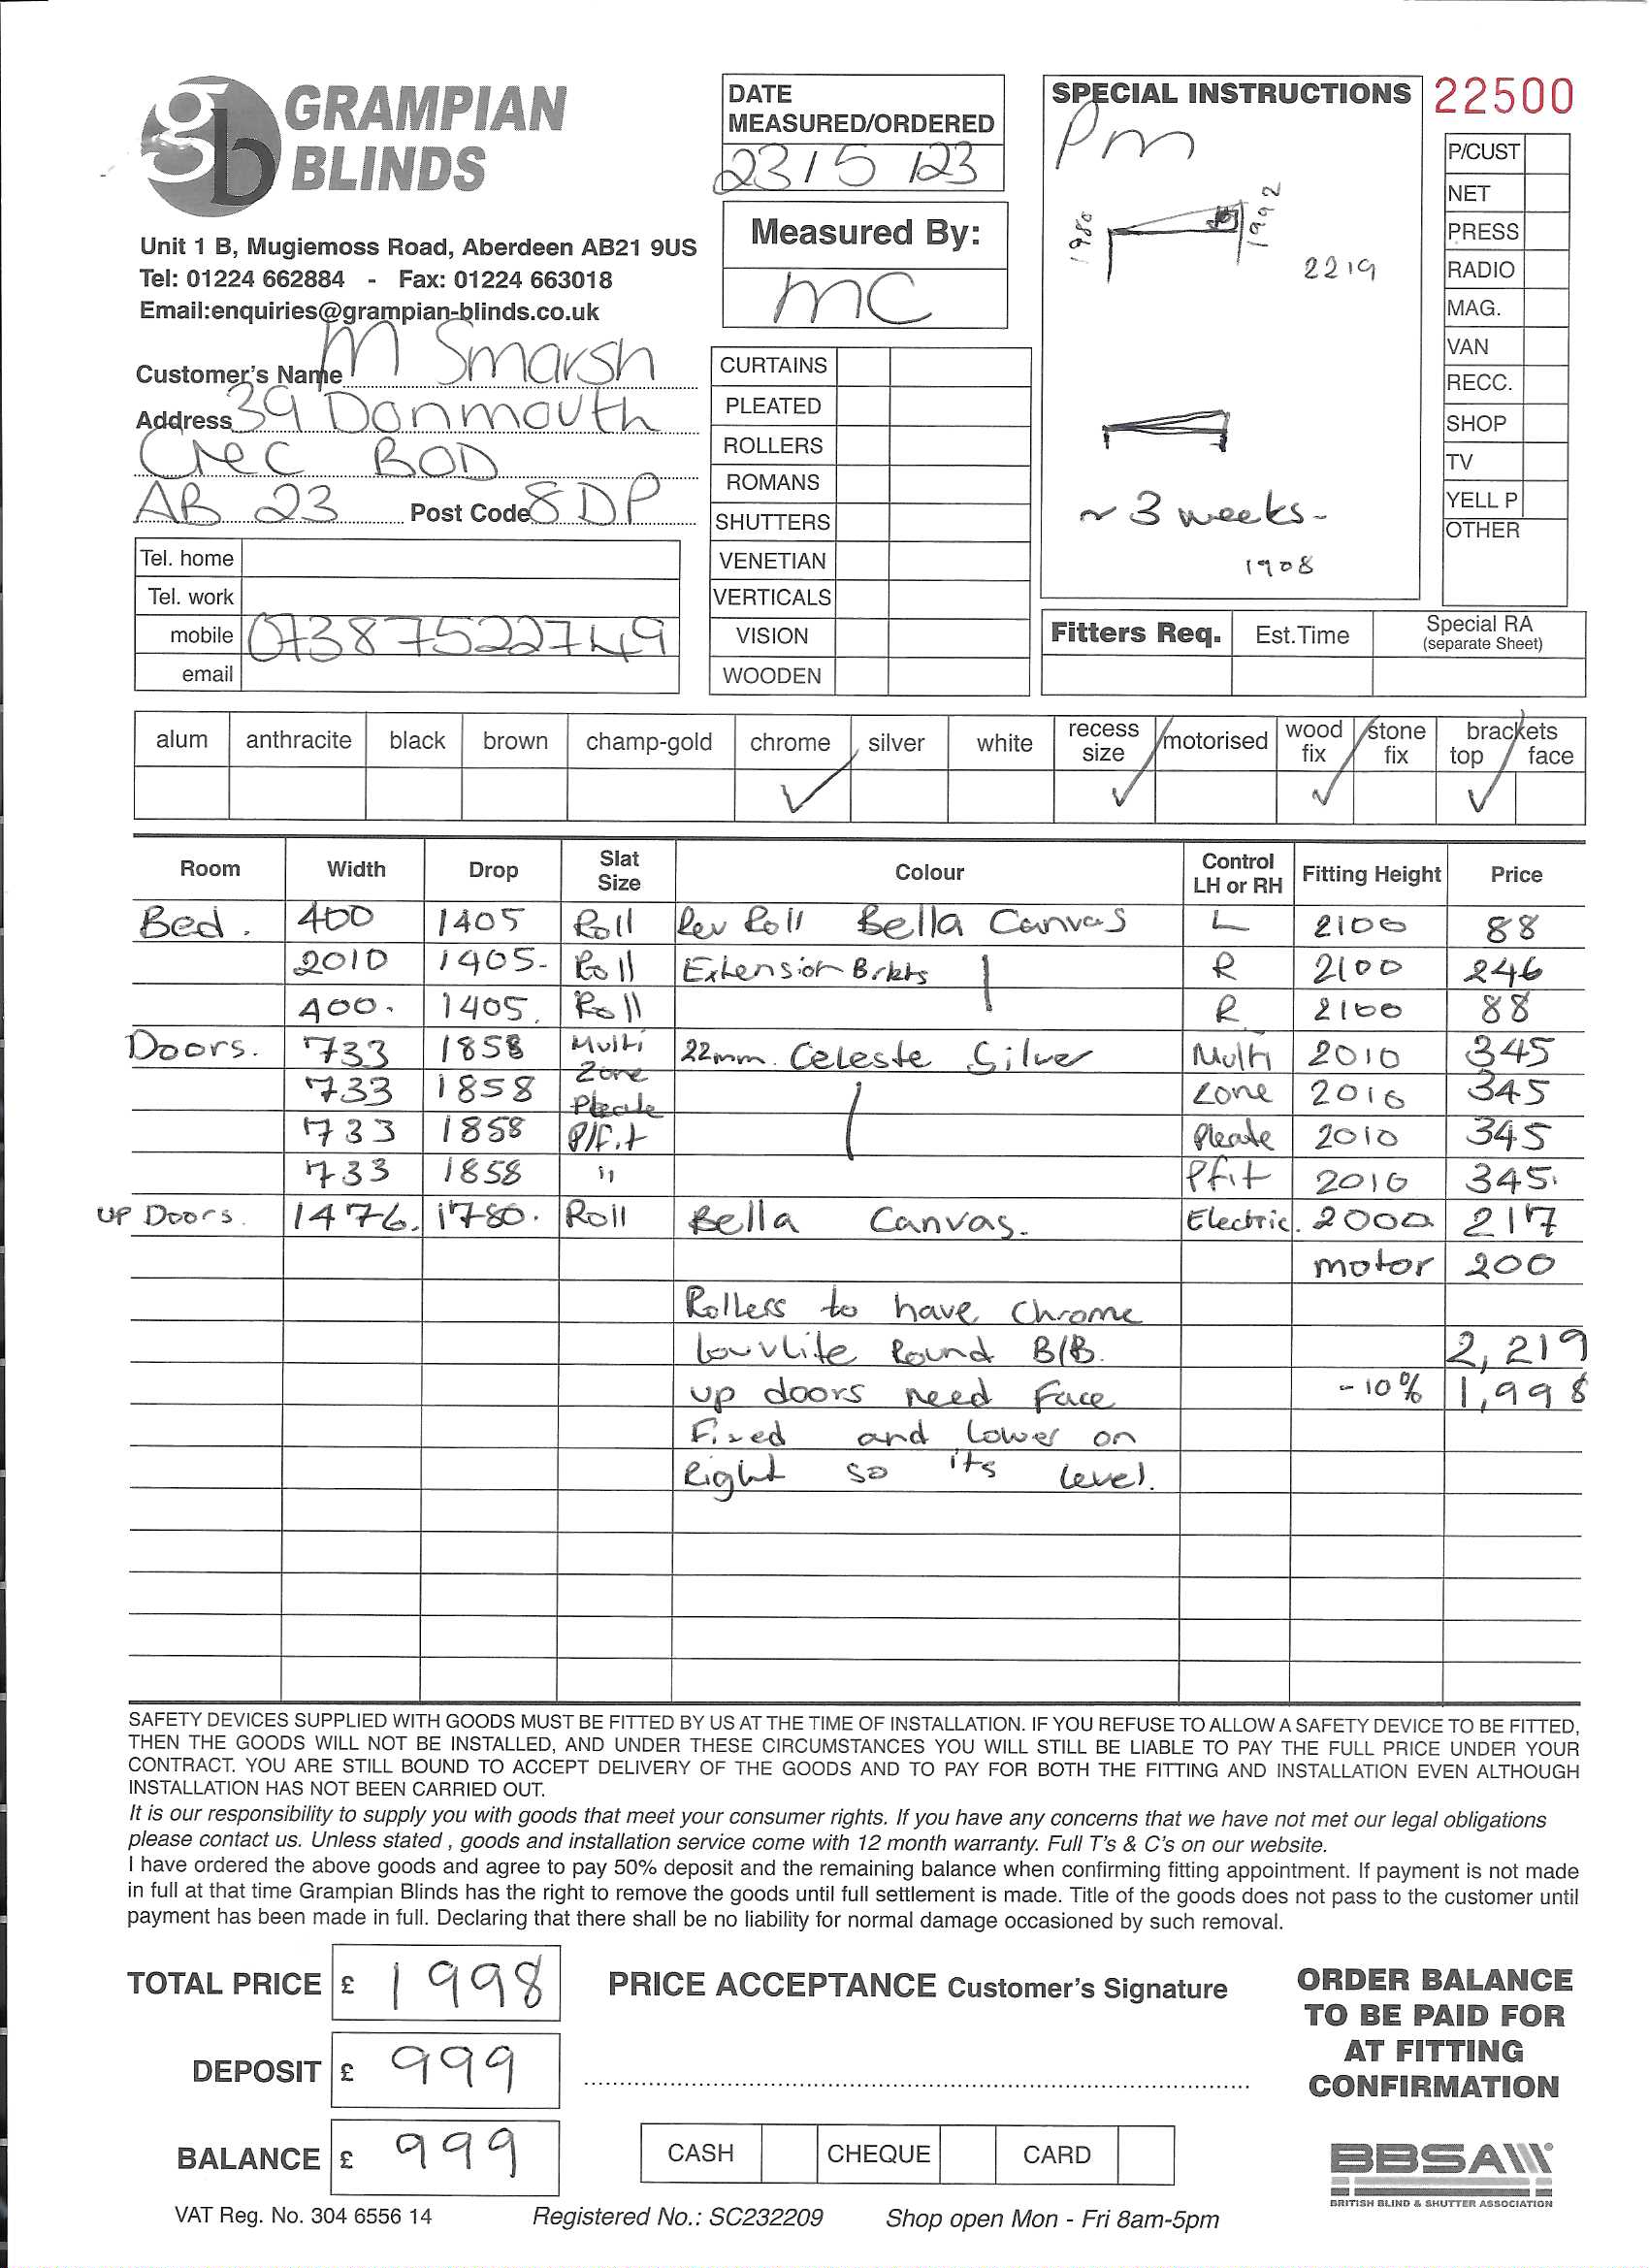 gb GRAMPIAN BLINDS
Unit 1 B, Mugiemoss Road, Aberdeen AB21 9US
Tel: 01224 662884 - Fax: 01224 663018
Email:enquiries@grampian-blinds.co.uk
Customer's Name M Smarsh
Address 39 Donmouth
Crec BOD
AB 23 Post Code 8DP
Tel. home
Tel. work
mobile 07387522749
email
DATE
MEASURED/ORDERED
23/5/23
Measured By:
MC
CURTAINS
PLEATED
ROLLERS
ROMANS
SHUTTERS
VENETIAN
VERTICALS
VISION
WOODEN
SPECIAL INSTRUCTIONS
Pm
1980 1992
2219
~ 3 weeks-
1908
22500
P/CUST
NET
PRESS
RADIO
MAG.
VAN
RECC.
SHOP
TV
YELL P
OTHER
Fitters Req. Est.Time Special RA
(separate Sheet)
alum anthracite black brown champ-gold chrome silver white recess size motorised wood fix stone fix brackets top face
✓ ✓ ✓ ✓
Room Width Drop Slat Size Colour Control LH or RH Fitting Height Price
Bed. 400 1405 Roll Rev Roll Bella Canvas L 2100 88
2010 1405- Roll Extension Brkts R 2100 246
400. 1405. Roll R 2100 88
Doors. 733 1858 Multi 22mm. Celeste Silver Multi 2010 345
733 1858 Zone Zone 2010 345
733 1858 Pleate P/Fit Pleate 2010 345
733 1858 " Pfit 2010 345.
UP Doors. 1476. 1780. Roll Bella Canvas. Electric. 2000 217
motor 200
Rollers to have Chrome
louvlite Round B/B. 2,219
up doors need Face -10% 1,998
Fixed and Lower on
Right so its level.
SAFETY DEVICES SUPPLIED WITH GOODS MUST BE FITTED BY US AT THE TIME OF INSTALLATION. IF YOU REFUSE TO ALLOW A SAFETY DEVICE TO BE FITTED,
THEN THE GOODS WILL NOT BE INSTALLED, AND UNDER THESE CIRCUMSTANCES YOU WILL STILL BE LIABLE TO PAY THE FULL PRICE UNDER YOUR
CONTRACT. YOU ARE STILL BOUND TO ACCEPT DELIVERY OF THE GOODS AND TO PAY FOR BOTH THE FITTING AND INSTALLATION EVEN ALTHOUGH
INSTALLATION HAS NOT BEEN CARRIED OUT.
It is our responsibility to supply you with goods that meet your consumer rights. If you have any concerns that we have not met our legal obligations
please contact us. Unless stated , goods and installation service come with 12 month warranty. Full T's & C's on our website.
I have ordered the above goods and agree to pay 50% deposit and the remaining balance when confirming fitting appointment. If payment is not made
in full at that time Grampian Blinds has the right to remove the goods until full settlement is made. Title of the goods does not pass to the customer until
payment has been made in full. Declaring that there shall be no liability for normal damage occasioned by such removal.
TOTAL PRICE £ 1998
DEPOSIT £ 999
BALANCE £ 999
PRICE ACCEPTANCE Customer's Signature
CASH CHEQUE CARD
ORDER BALANCE
TO BE PAID FOR
AT FITTING
CONFIRMATION
BBSA
BRITISH BLIND & SHUTTER ASSOCIATION
VAT Reg. No. 304 6556 14 Registered No.: SC232209 Shop open Mon - Fri 8am-5pm